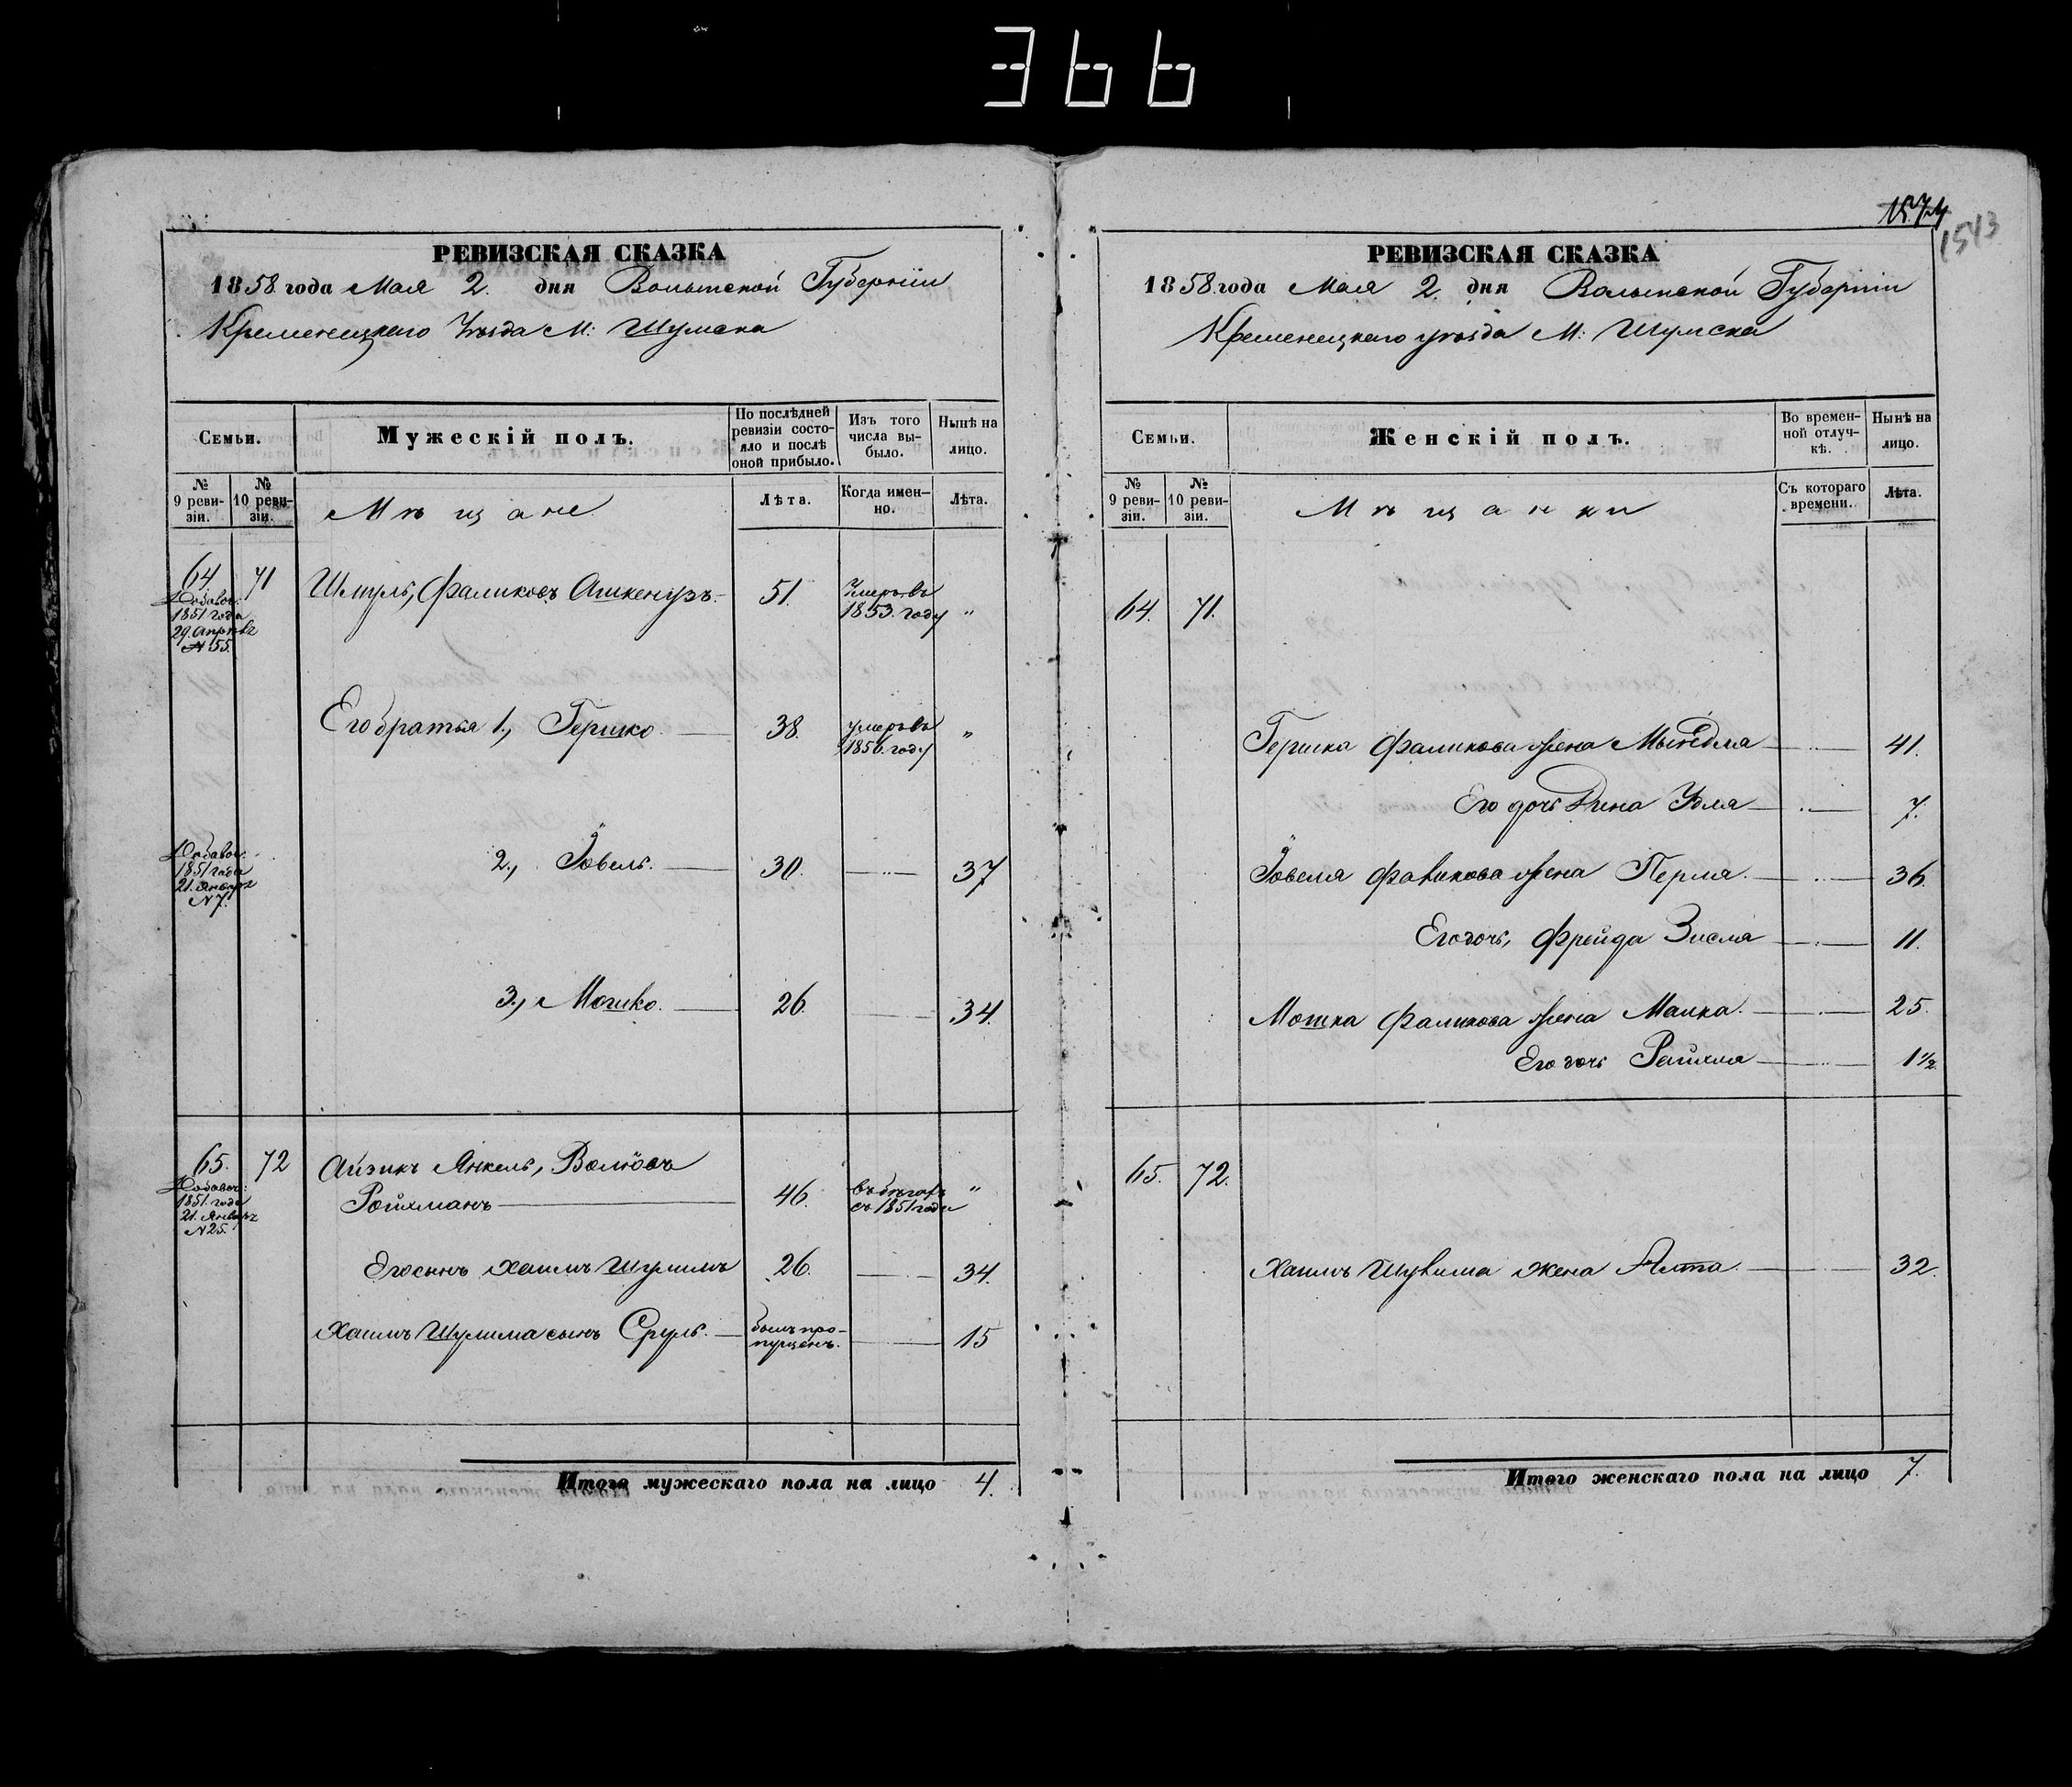 366
1574
1543
РЕВИЗСКАЯ СКАЗКА
1858 года Мая 2. дня Волынской Губерніи
Кременецкаго Уѣзда М: Шумска
Семьи.
Мужескій полъ.
По послѣдней ревизіи состояло и послѣ оной прибыло.
Изъ того числа выбыло.
Нынѣ на лицо.
№ 9 ревизіи.
№ 10 ревизіи.
Мѣщане
Лѣта.
Когда именно.
Лѣта.
64. 71 Шмуль, Фаликовъ Ашкенузъ 51. Умеръ въ 1853. году "
Добавоч:
1851 года
29. Апрѣля
№ 55.
Его братья 1., Гершко 38. умеръ въ 1856. году "
2., Іовель. 30. 37
Добавоч:
1851 года
21. Январ
№ 7.
3., Мошко. 26. 34.
65. 72 Айзикъ Янкель, Волковъ
Ройхманъ 46. въ бѣгахъ съ 1851 года "
Добавоч:
1851. года
21. Январ
№ 25.
Его сынъ Хаимъ Шулимъ 26. 34.
Хаимъ Шулима сынъ Сруль. былъ пропущенъ. 15
Итого мужескаго пола на лицо 4.
РЕВИЗСКАЯ СКАЗКА
1858. года Мая 2. дня Волынской Губерніи
Кременецкаго уѣзда М: Шумска
Семьи.
Женскій полъ.
Во временной отлучкѣ.
Нынѣ на лицо.
№ 9 ревизіи.
№ 10 ревизіи.
Мѣщанки
Съ котораго времени.
Лѣта.
64. 71.
Гершка Фаликова жена Мындля 41.
Его дочь Дина Удля 7.
Іовеля Фаликова жена Перля. 36.
Его дочь, Фрейда Зисля 11.
Мошка Фаликова жена Малка. 25.
Его дочь Рейхля 1 ½.
65. 72.
Хаимъ Шулима жена Алта. 32.
Итого женскаго пола на лицо 7.